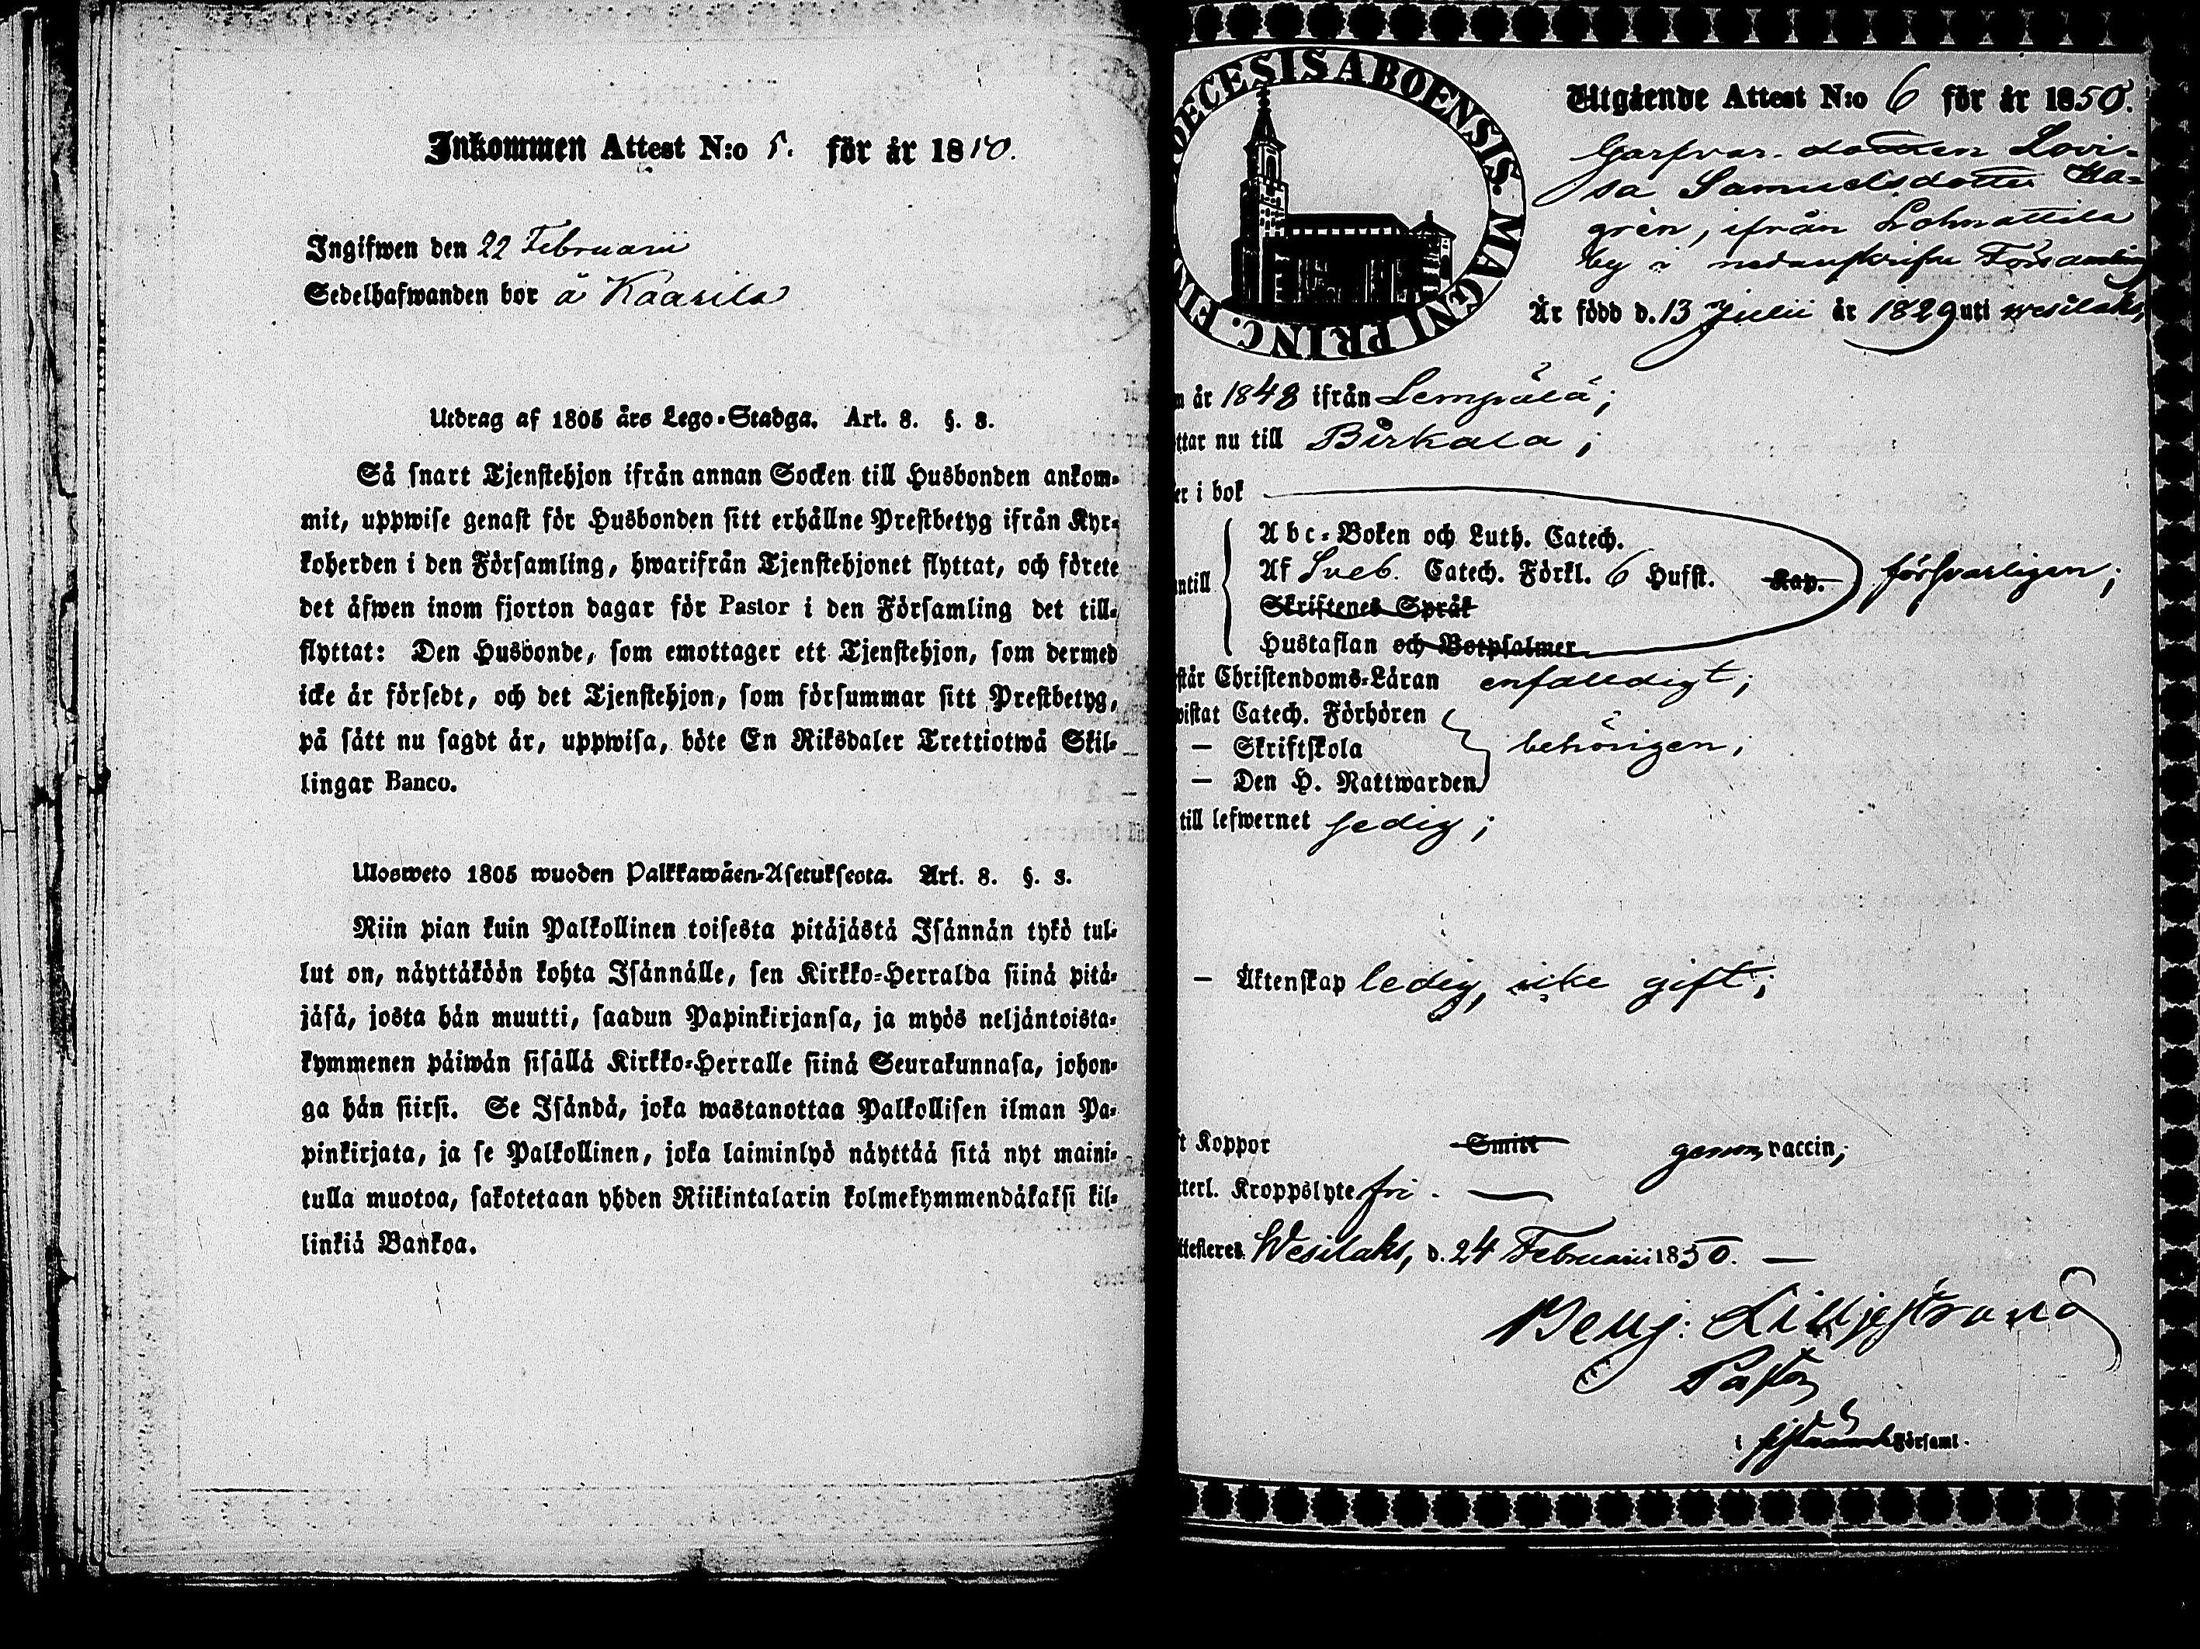 Inkommen Attest N:o 5. för år 1850.
Ingifwen den 22 Februarii
Sedelhafwanden bor å Kaarila
Utdrag af 1805 års Lego-Stadga. Art. 8. §. 3.
Så snart Tjenstehjon ifrån annan Socken till Husbonden ankom-
mit, uppwise genast för Husbonden sitt erhållne Prestbetyg ifrån Kyr-
koherden i den Församling, hwarifrån Tjenstehjonet flyttat, och förete
det äfwen inom fjorton dagar för Pastor i den Församling det till-
flyttat: Den Husbonde, som emottager ett Tjenstehjon, som dermed
icke är försedt, och det Tjenstehjon, som försummar sitt Prestbetyg,
på sätt nu sagdt är, uppwisa, böte En Riksdaler Trettiotwå Skil-
lingar Banco.
Ulosweto 1805 wuoden Palkkawäen-Asetuksesta. Art. 8. §. 3.
Niin pian kuin Palkollinen toisesta pitäjästä Isännän tykö tul-
lut on, näyttäköön kohta Isännälle, sen Kirkko-Herralda siinä pitä-
jäsä, josta hän muutti, saadun Papinkirjansa, ja myös neljäntoista-
kymmenen päiwän sisällä Kirkko-Herralle siinä Seurakunnasa, johon-
ga hän siirsi. Se Isändä, joka wastanottaa Palkollisen ilman Pa-
pinkirjata, ja se Palkollinen, joka laiminlyö näyttää sitä nyt maini-
tulla muotoa, sakotetaan yhden Riikintalarin kolmekymmendäkaksi kil-
linkiä Bankoa.
DECESIS ABOENSIS. MAGNI PRINC. FIN
Utgående Attest N:o 6 för år 1850.
Garfvar. dottren Lovi-
sa Samuelsdotter Ha-
grèn, ifrån Lohnattila
by i nedanskrifne Församling
Är född d. 13 Julii år 1829 uti Wesilaks,
n år 1848 ifrån Lempälä;
ttar nu till Birkala;
er i bok
Abc-Boken och Luth. Catech.
antill Af Sveb. Catech. Förkl. 6 Hufst. Kap. försvarligen;
Skriftenes Språk
Hustaflan och Botpsalmer
står Christendoms-Läran enfaldigt;
vistat Catech. Förhören
— Skriftskola behörigen;
— Den H. Nattwarden
till lefwernet sedig;
— Äktenskap ledig, icke gift;
ft Koppor Smitt genom vaccin;
tterl. Kroppslyte fri. —
ttesteres Wesilaks, d. 24 Februarii 1850. —
Benj: Lilljestrand
Pastor
i Församl.